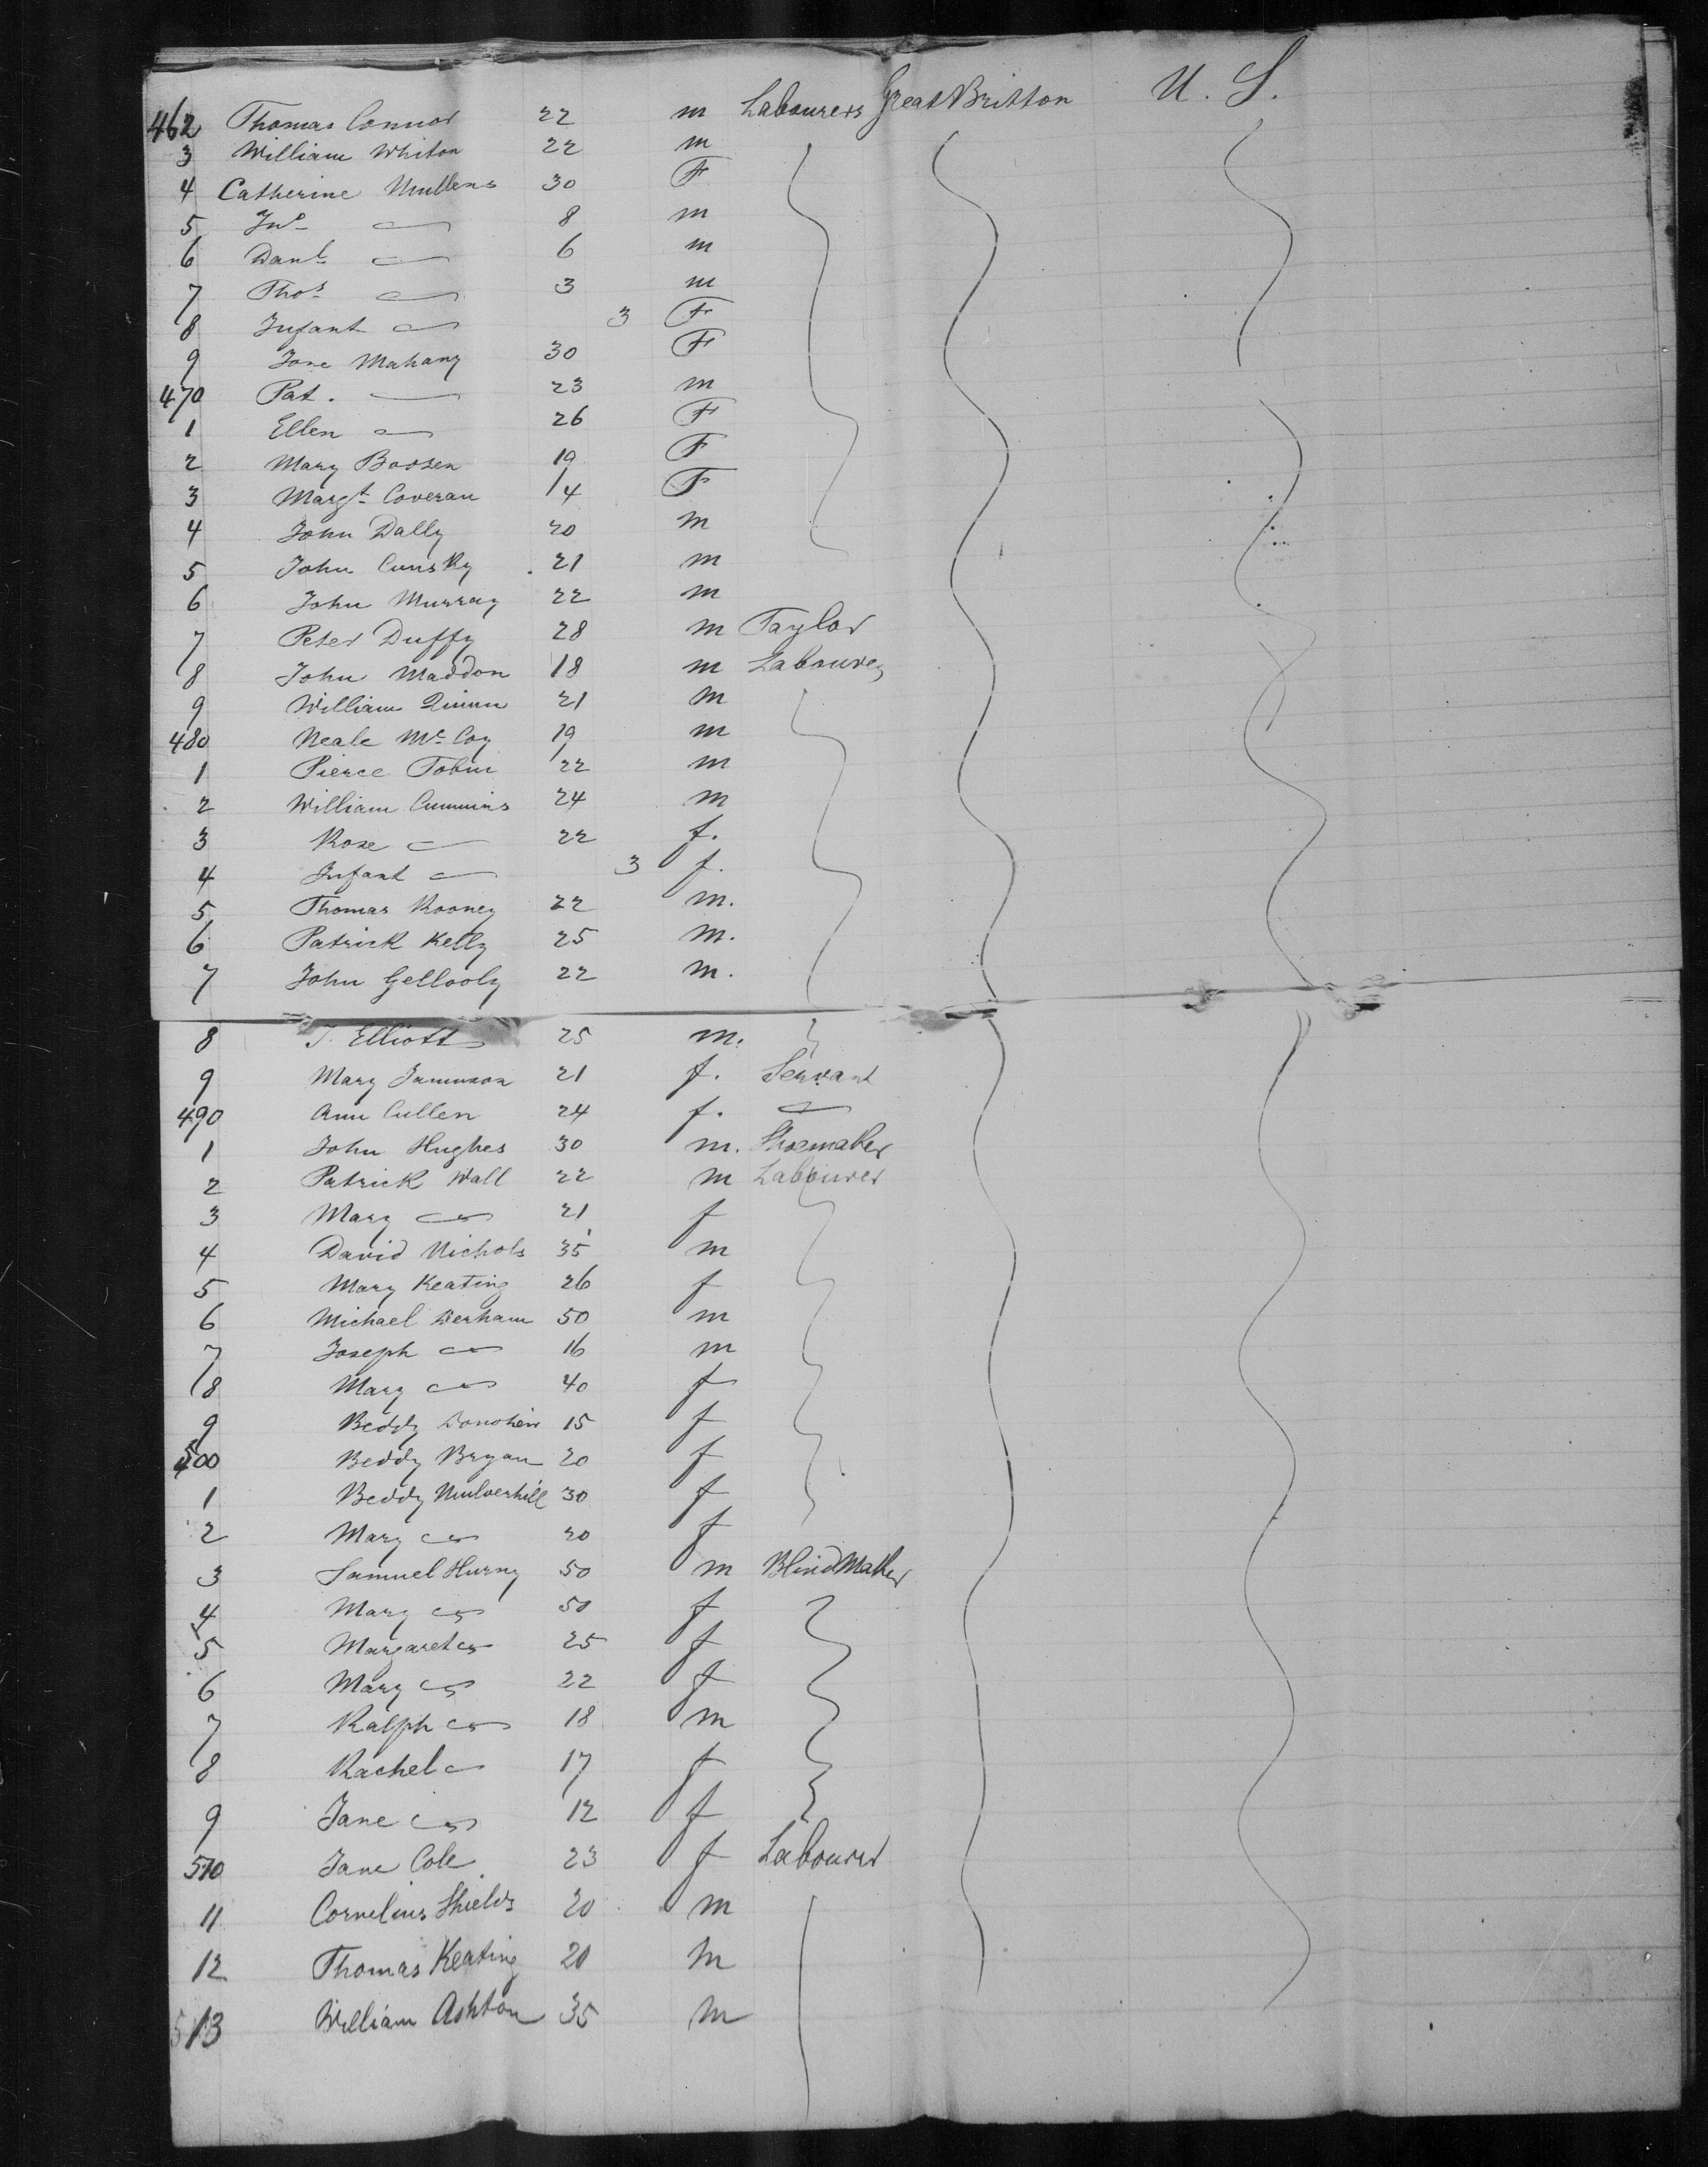 462 Thomas Connor 22 m Labourers Great Britton U. S.
3 William Whiton 22 m
4 Catherine Mullens 30 F
5 Jno 8 m
6 Danl 6 m
7 Thos 3 m
8 Infant 3 F
9 Jane Mahany 30 F
470 Pat. 23 m
1 Ellen 26 F
2 Mary Bossen 19 F
3 Margt Coveran 14 F
4 John Dally 20 m
5 John Cunsky 21 m
6 John Murray 22 m
7 Peter Duffy 28 m Taylor
8 John Maddon 18 m Labourer
9 William Quinn 21 m
480 Neale Mc Coy 19 m
1 Pierce Tobin 22 m
2 William Cummins 24 m
3 Rose 22 f.
4 Infant 3 f.
5 Thomas Rooney 22 m.
6 Patrick Kelly 25 m.
7 John Gellooly 22 m.
8 J. Elliott 25 m.
9 Mary Jamuson 21 f. Servant
490 Ann Cullen 24 f.
1 John Hughes 30 m. Shoemaker
2 Patrick Wall 22 m Labourer
3 Mary 21 f
4 David Nichols 35 m
5 Mary Keating 26 f
6 Michael Derham 50 m
7 Joseph 16 m
8 Mary 40 f
9 Beddy 15 f
500 Beddy Bryan 20 f
1 Beddy Mulverhill 30 f
2 Mary 20 f
3 Samuel Hurny 50 m Blind Maker
4 Mary 50 f
5 Margaret 25 f
6 Mary 22 f
7 Ralph 18 m
8 Rachel 17 f
9 Jane 12 f
510 Jane Cole 23 f Labourer
11 Cornelius Shields 20 m
12 Thomas Keating 20 m
513 William Ashton 35 m